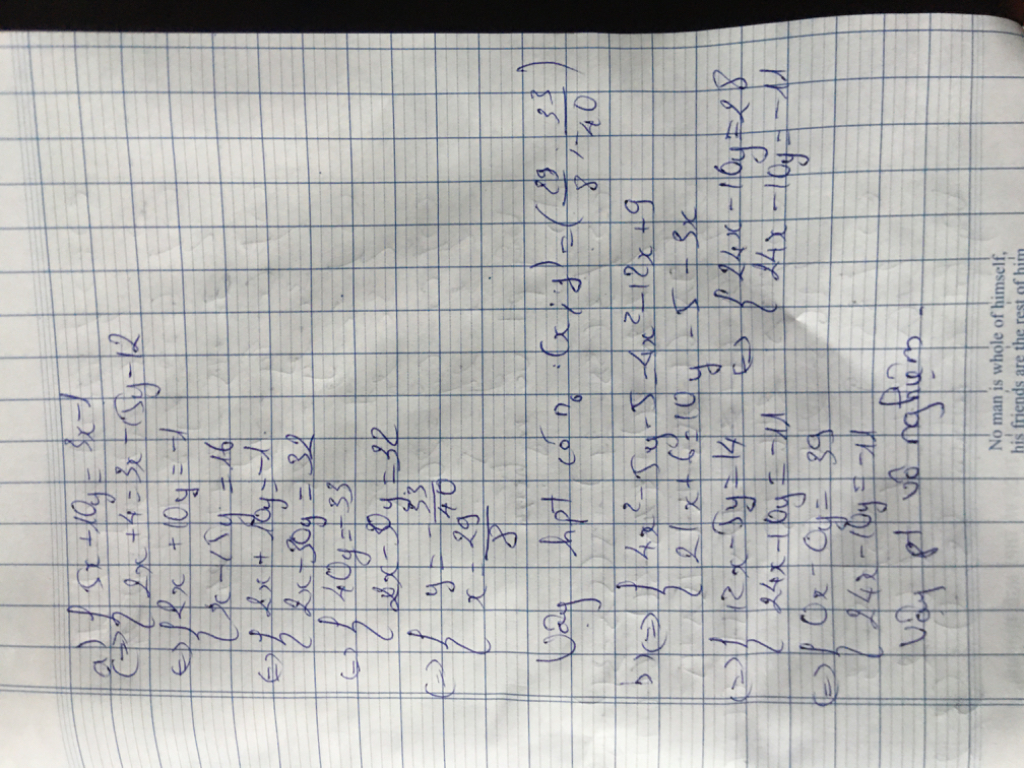 a) { 5x + 10y = 3x - 1
(=) { 2x + 4 = 3x - 15y - 12
(=) { 2x + 10y = -1
{ x - 15y = 16
(=) { 2x + 10y = -1
{ 2x - 30y = 32
(=) { 40y = -33
{ 2x - 30y = 32
(=) { y = -33/40
{ x - 29/8
Vậy hpt có n0: (x; y) = (29/8; -33/40)
b) (=) { 4x² - 5y - 5 = 4x² - 12x + 9
{ 21x + 6 = 10y - 5 - 3x
(=) { 12x - 5y = 14 (=) { 24x - 10y = 28
{ 24x - 10y = -11 { 24x - 10y = -11
(=) { 0x - 0y = 39
{ 24x - 10y = -11
Vậy pt vô nghiệm.
No man is whole of himself,
his friends are the rest of him